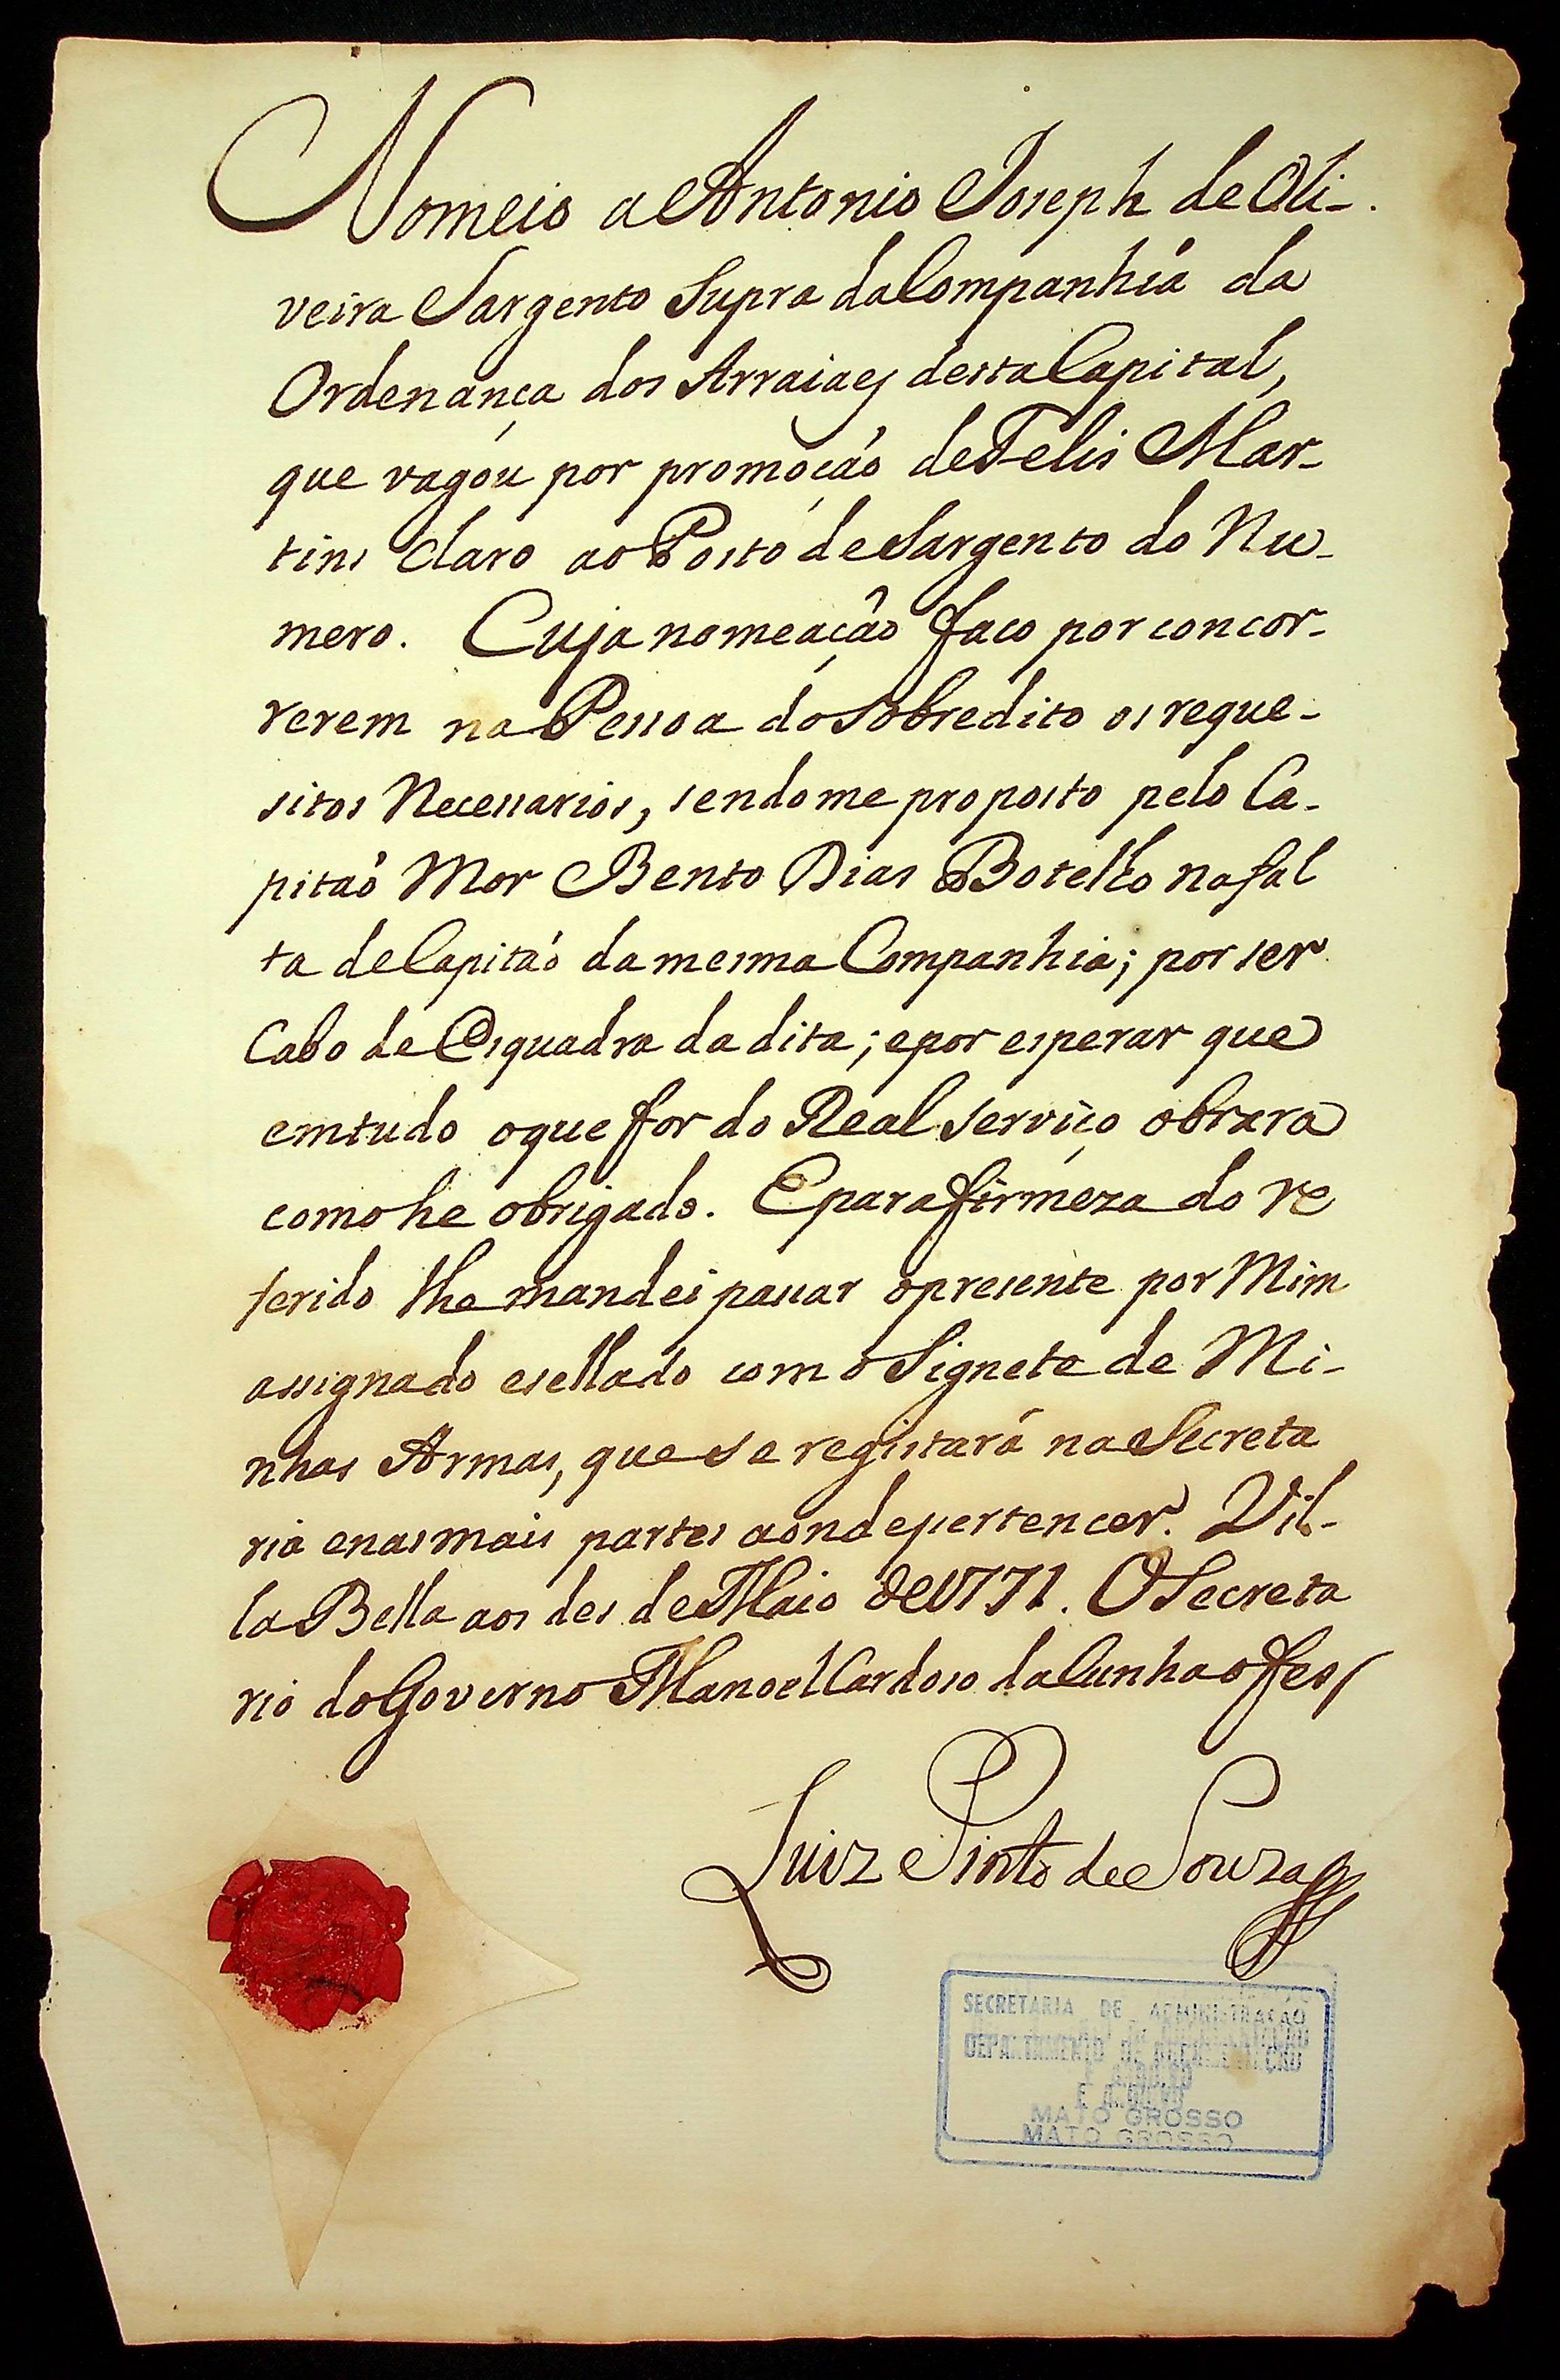 Nomeio a Antonio Joseph de Oli-
veira Sargento Supra da Companhia da
Ordenança dos Arraiaes desta Capital,
que vagou por promoçaõ de Felis Mar-
tins Claro ao Posto de Sargento do Nu-
mero. Cuja nomeaçaõ faço por concor-
rerem na Pessoa do sobredito os reque-
sitos Necessarios, sendome proposto pelo Ca-
pitaõ Mor Bento Dias Botelho na fal
ta de Capitaõ da mesma Companhia; por ser
Cabo de Esquadra da dita; e por esperar que
em tudo o que for do Real serviço obrara
como he obrigado. E para firmeza do re
ferido lhe mandei passar o presente por Mim
assignado e sellado com o Signete de Mi-
nhas Armas, que se registará na Secreta
ria e nas mais partes aonde pertencer. Vil-
la Bella aos des de Maio de 1771. O Secreta
rio do Governo Manoel Cardoso da Cunha o fes
Luiz Pinto de Souza
SECRETARIA DE ADMINISTRAÇÃO
DEPARTAMENTO DE DOCUMENTAÇÃO
E ARQUIVO
E ARQUIVO
MATO GROSSO
MATO GROSSO